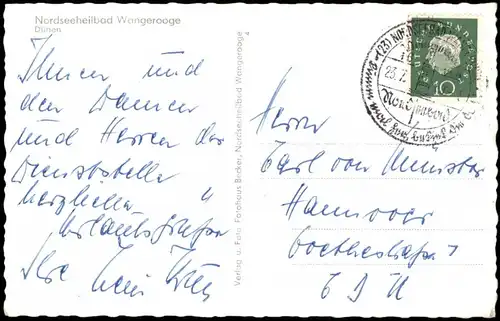 Nordseeheilbad Wangerooge
Dünen
Ihnen und
den Damen
und Herren der
Dienststelle
herzliche
Urlaubsgrüße
Ihre
Verlag u. Foto Fotohaus Becker, Nordseeheilbad Wangerooge
DEUTSCHE BUNDESPOST
10
(23)
23.7.
Herrn
Carl von Münster
Hannover
Goethestraße